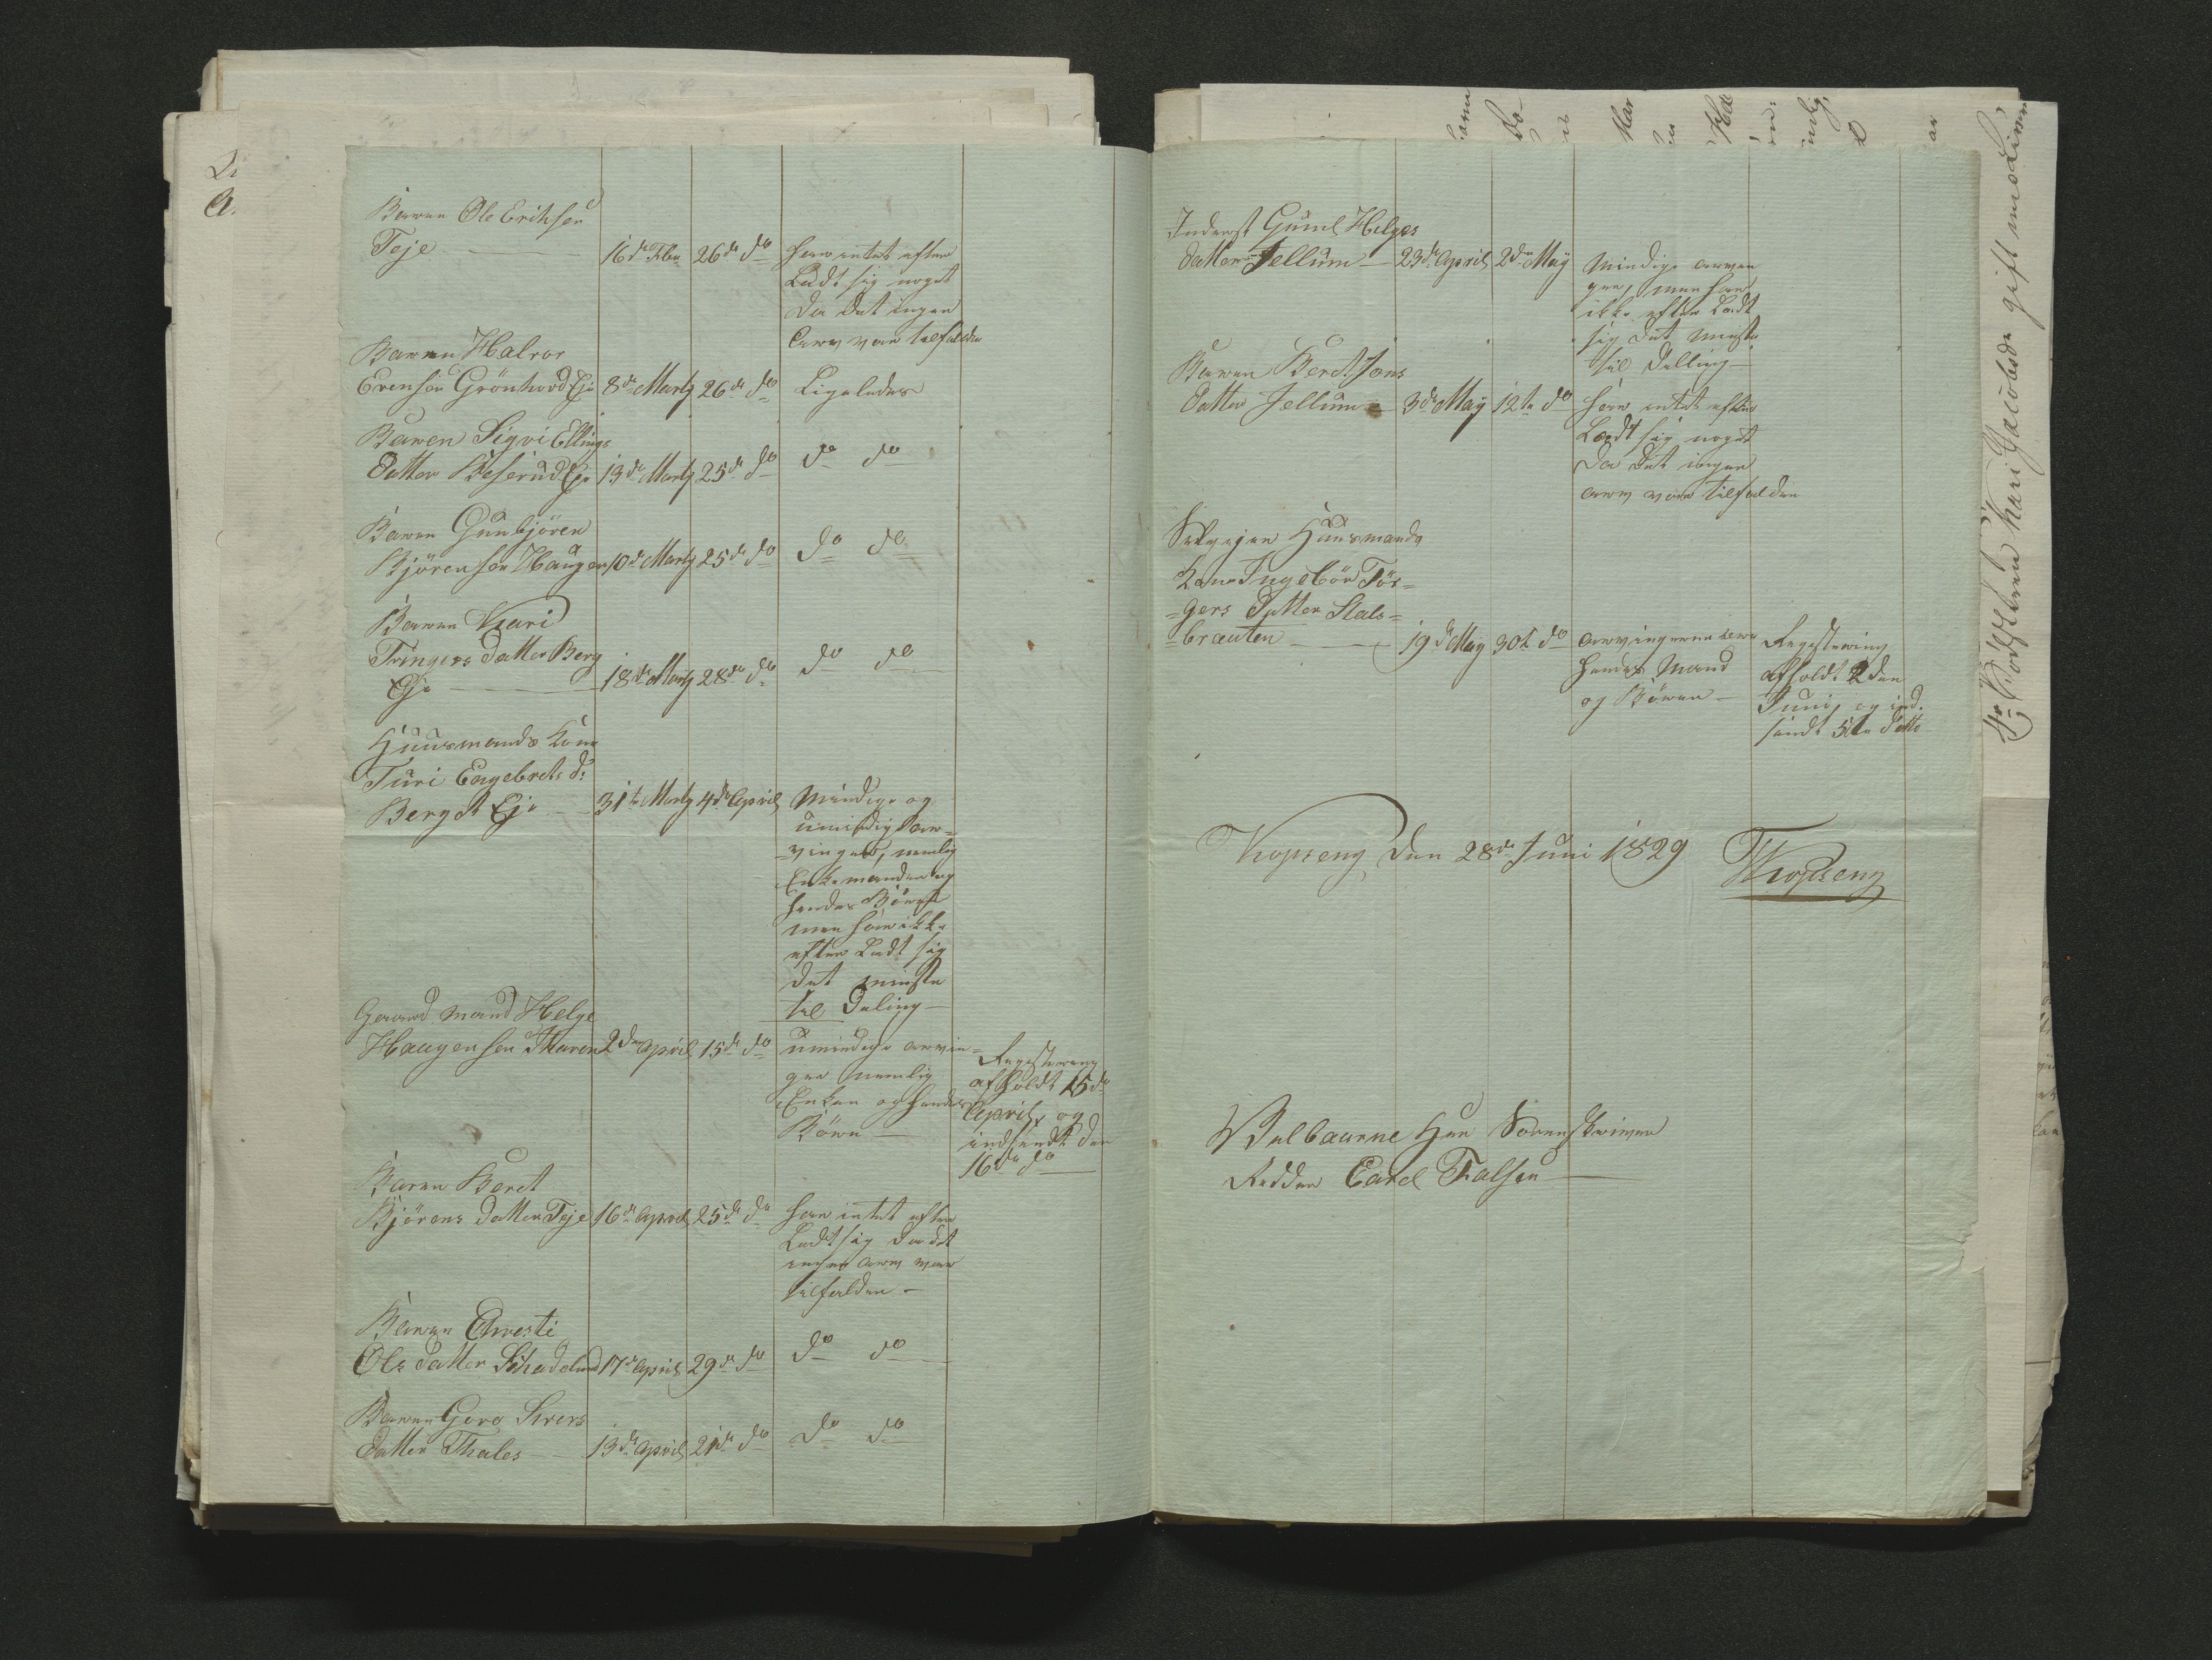 Barnet Ole Eriksen
Teje — 16de Febr 26de do har intet efter
Ladt sig noget
da det ingen
Arv var tilfalden
Barnet Halvor
Evensen Grönhovd Eje 8de Marty 26de do Ligeledes
Barnet Sigvi Ellings
Datter Beserud Eje 13de Marty 25de do do do
Barnet Gunbjören
Björensen Haugen 10de Marty 25de do do do
Barnet Kari
Tringers Datter Berg
Eje — 18de Marty 28de do do do
Huusmands Kone
Turi Engebrets d:
Berg dt Eje — 31te Marty 4de April Mindige og
umindig Ar=
=vinger, nemlig
Enkemanden og
hendes Börn
men har ikke
efter Ladt sig
det minste
til Deling —
Gaard mand Helge
Haugensen Maren 2den April 15de do umindige arvin=
ger nemlig
Enken og hendes
Börn —
Regestrering
afholdt 15de
April, og
indsendt den
16de do —
Barnet Beret
Björens Datter Teje 16de April 25de do har intet efter
Ladt sig da det
ingen arv var
tilfalden —
Barnet Chresti
Ols Datter Skadelund 17de April 29de do do do
Barnet Goro Sivers
Datter Thales — 13de April 21de do do do
Inderst Gunil Helges
datter Jellum — 23de April 2den May Mindige arvin
ger, men har
ikke efter Ladt
sig det minste
til Delling —
Barnet Beret Jons
Datter Jellum — 3de May 12te do har intet efter
Ladt sig noget
da det ingen
arv var tilfalden
Huusmands
Kone Ingebör Tör=
=gers Datter Stals=
=brauten — 19de May 30te do arvingerne ere
hendes Mand
og Börn —
Regestrering
afholdt 2den
Juni, og ind.
sendt 5te ditto
Kopseng den 28de Juni 1829 Kopseng
Velbaarne Herr Sorenskriver
Ridder Carel Falsen —
Kari Jacobsdr gift med